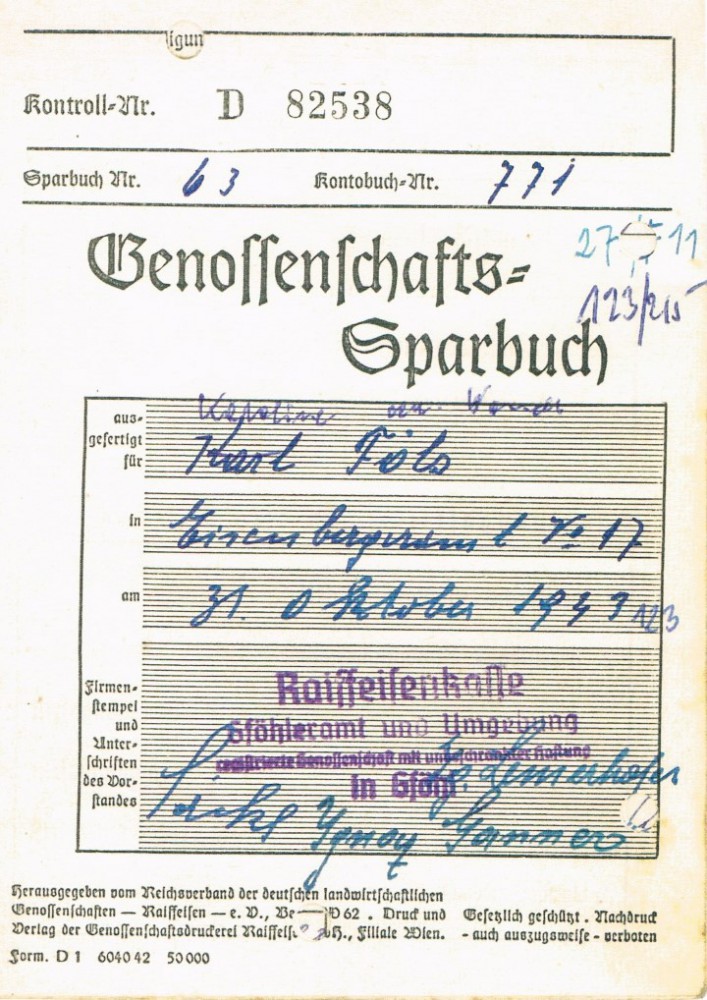 igun
Kontroll-Nr. D 82538
Sparbuch Nr. 63 Kontobuch-Nr. 771
27 11
Genossenschafts-
123/215
Sparbuch
aus-
gefertigt
für
Karl Föls
in
Eisenbergeramt № 17
am
31. Oktober 1943 123
Firmen-
stempel
und
Unter-
schriften
des Vor-
standes
Raiffeisenkasse
Gföhleramt und Umgebung
registrierte Genossenschaft mit unbeschränkter Haftung
in Gföhl
Ignaz
Herausgegeben vom Reichsverband der deutschen landwirtschaftlichen
Genossenschaften — Raiffeisen — e. V., Be 62 . Druck und
Verlag der Genossenschaftsdruckerei Raiffeis H., Filiale Wien.
Gesetzlich geschützt . Nachdruck
- auch auszugsweise - verboten
Form. D 1 6040 42 50 000